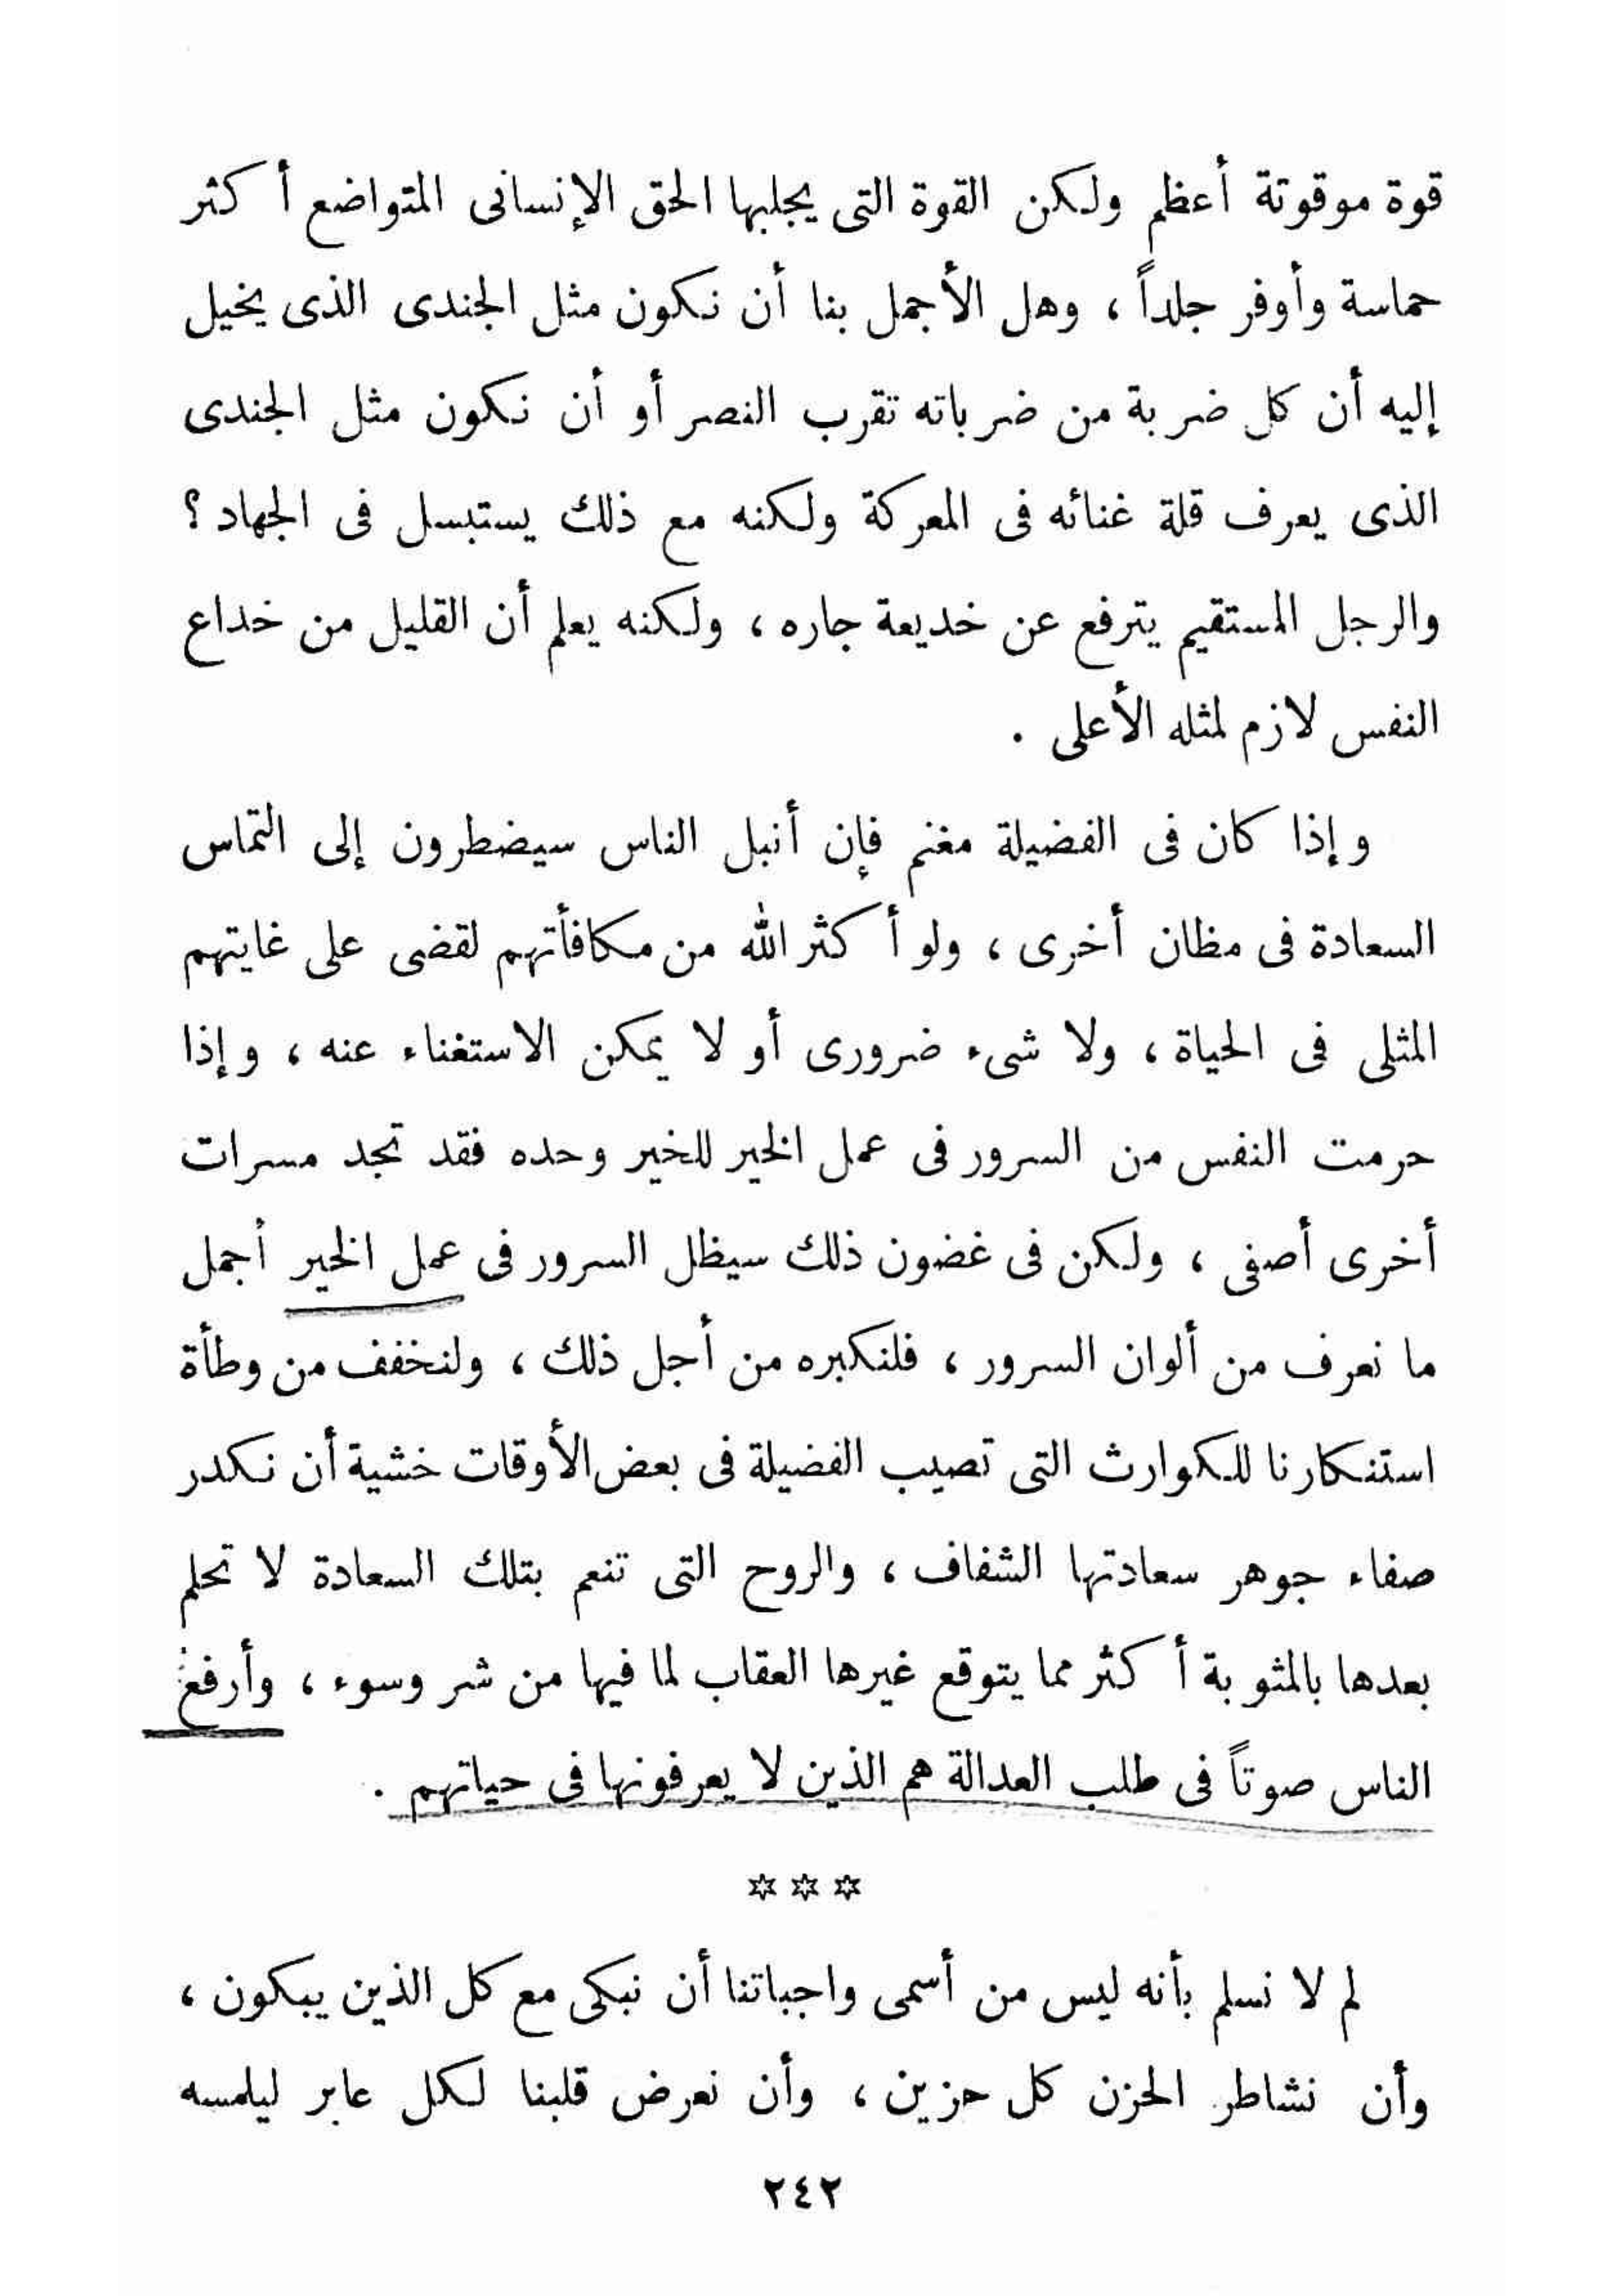 قوة موقوتة أعظم ولكن القوة التى يجلبها الحق الإنسانى المتواضع أكثر
حماسة وأوفر جلداً ، وهل الأجمل بنا أن نكون مثل الجندى الذى يخيل
إليه أن كل ضربة من ضرباته تقرب النصر أو أن نكون مثل الجندى
الذى يعرف قلة غنائه فى المعركة ولكنه مع ذلك يستبسل فى الجهاد ؟
والرجل المستقيم يترفع عن خديعة جاره ، ولكنه يعلم أن القليل من خداع
النفس لازم لمثله الأعلى .
وإذا كان فى الفضيلة مغنم فإن أنبل الناس سيضطرون إلى التماس
السعادة فى مظان أخرى ، ولو أكثر الله من مكافأتهم لقضى على غايتهم
المثلى فى الحياة ، ولا شىء ضرورى أو لا يمكن الاستغناء عنه ، وإذا
حرمت النفس من السرور فى عمل الخير للخير وحده فقد تجد مسرات
أخرى أصفى ، ولكن فى غضون ذلك سيظل السرور فى عمل الخير أجمل
ما نعرف من ألوان السرور ، فلنكبره من أجل ذلك ، ولنخفف من وطأة
استنكارنا للكوارث التى تصيب الفضيلة فى بعض الأوقات خشية أن نكدر
صفاء جوهر سعادتها الشفاف ، والروح التى تنعم بتلك السعادة لا تحلم
بعدها بالمثوبة أكثر مما يتوقع غيرها العقاب لما فيها من شر وسوء ، وأرفع
الناس صوتاً فى طلب العدالة هم الذين لا يعرفونها فى حياتهم .
✡ ✡ ✡
لم لا نسلم بأنه ليس من أسمى واجباتنا أن نبكى مع كل الذين يبكون ،
وأن نشاطر الحزن كل حزين ، وأن نعرض قلبنا لكل عابر ليلمسه
٢٤٢